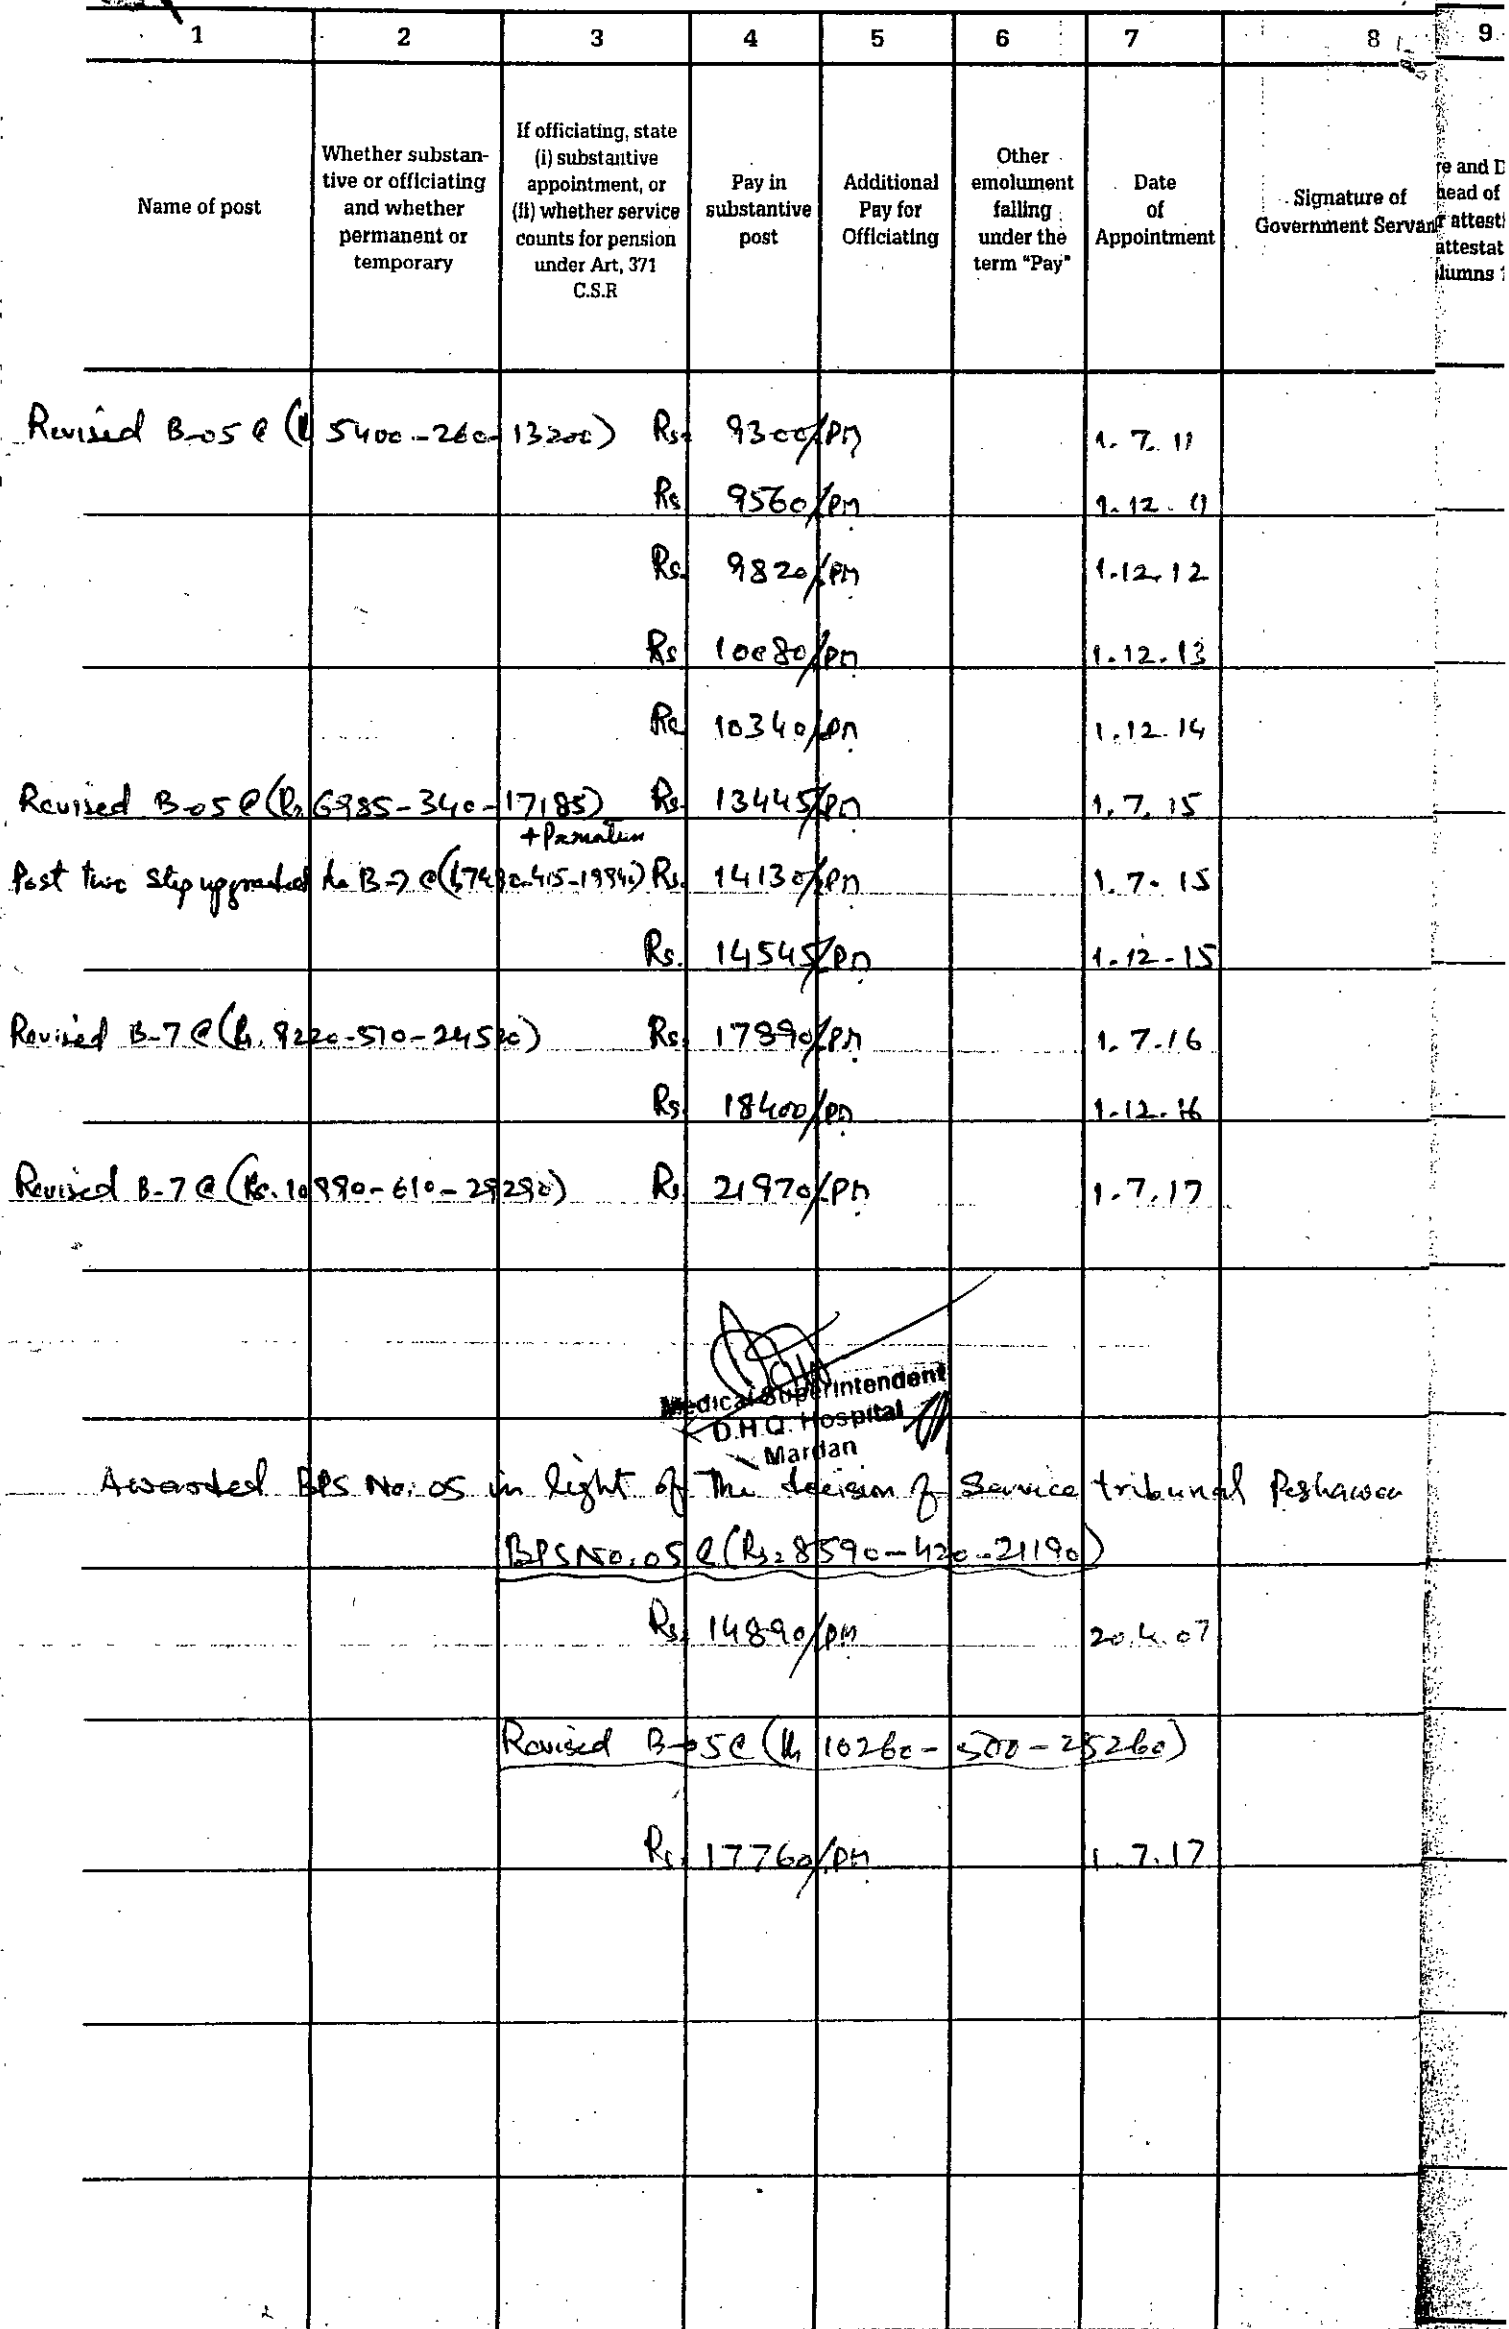 1 2 3 4 5 6 7 8 9
Name of post
Whether substan-
tive or officiating
and whether
permanent or
temporary
If officiating, state
(i) substantive
appointment, or
(ii) whether service
counts for pension
under Art, 371
C.S.R
Pay in
substantive
post
Additional
Pay for
Officiating
Other
emolument
falling
under the
term "Pay"
Date
of
Appointment
Signature of
Government Servan
re and D
head of
r attest
attestat
lumns 1
Revised B-05 @ ( 5400-260-13200) Rs. 9300/PM 1.7.11
Rs. 9560/PM 1.12.11
Rs. 9820/PM 1.12.12
Rs. 10080/PM 1.12.13
Rs. 10340/PM 1.12.14
Revised B-05 @ (Rs. 6985-340-17185) Rs. 13445/PM 1.7.15
+ Prematun
Post two step upgraded to B-7 @ ( 7490-415-19940) Rs. 14130/PM 1.7.15
Rs. 14545/PM 1.12-15
Revised B-7 @ (Rs. 9220-510-24520) Rs. 17890/PM 1.7.16
Rs. 18400/PM 1.12.16
Revised B-7 @ (Rs. 10990-610-29290) Rs. 21970/PM 1.7.17
Medical Superintendent
D.H.Q. Hospital
Mardan
Awarded BPS No. 05 in light of The decision of Service tribunal Peshawar
BPS No. 05 @ (Rs. 8590-420-21190)
Rs. 14890/PM 20.4.07
Revised B-05 @ (Rs 10260-500-25260)
Rs. 17760/PM 1.7.17